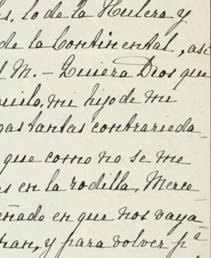 s, lo de la Hulera y
de la Continental, asi
l M. - Quiera Dios que
uilo, mi hijo de mi
gas tantas contrarieda-
que como no se me
s en la rodilla, Merce
eñado en que nos vaya-
han, y para volver pª